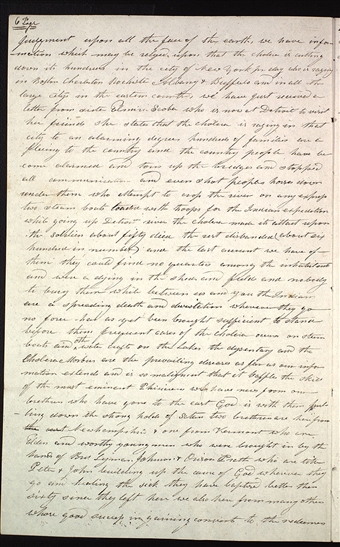 6 Page
judgement upon all the face of the earth. we have infor
mation which may be relyed upon that the cholera is cutting
down its hundreds in the city of New York pr day also is raging
in Boston Charleston Rochester Albany & Buffalo and most the
large citys in the eastern country. we have just received a
letter from sister who is now at Detroit to visit
her friends She states that the cholera is raging in that
city to an alarming degree hundreds of families are a
fleeing to the country and the country people have be
come alarmed and torn up the bridges and stopped
all communication and even shot peoples horses down
under them who attempt to cross the river on any express
two steam boats loaded with troops for the Indian expedition
while going up Detroit river the cholera made its attact upon
the soldiers about fifty died the rest disbanded about six
hundred in number and the last account we have of
them they could find no quarters among the inhabitants
and were a dying in the sheds and fields and nobody
to bury them while between us and you the Indians
are a spreading death and devistation wherever they go
no force has as yet been brought sufficient to stand
before them frequent cases of the cholera occur on steam
boats and other vessels on the lakes the dysentary and the
Cholerea Morbus are the prevailing disease as far as our infor
mation extends and is so malignant that it baffles the skill
of the most eminent Phisicians we have news from our
brethren who have gone to the east God is with them pull
ing down the strong holds of Satan two brethren are here from
Newhampshire & one from Vermont who are
Elders and worthy young men who were brought in by the
hands of Bros Lyman Johnson & Orson Pratt who are like
Peter & John building up the cause of God wherever they
go and healing the sick they have baptised better than
sixty since they left here we also hear from many other
whose good success in gaining converts to the redeemers